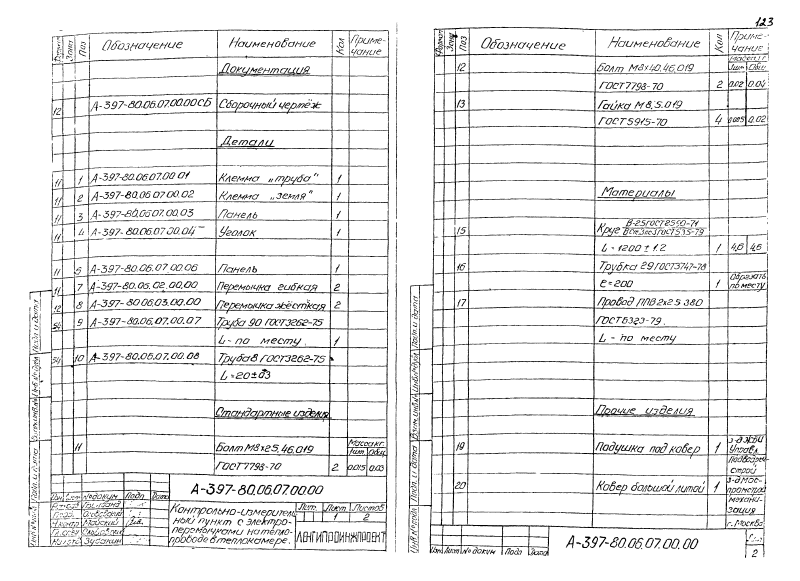 Формат Зона Поз Обозначение Наименование Кол Приме-
чание
Документация
12 А-397-80.06.07.00.00СБ Сборочный чертёж
Детали
11 1 А-397-80.06.07.00.01 Клемма „труба" 1
11 2 А-397-80.06.07.00.02 Клемма „земля" 1
11 3 А-397-80.06.07.00.03 Панель 1
11 4 А-397-80.06.07.00.04 Уголок 1
11 6 А-397-80.06.07.00.06 Панель 1
11 7 А-397-80.06.02.00.00 Перемычка гибкая 2
12 8 А-397-80.06.03.00.00 Перемычка жёсткая 2
б4 9 А-397-80.06.07.00.07 Труба 90 ГОСТ3262-75
L - по месту 1
б4 10 А-397-80.06.07.00.08 Труба 8 ГОСТ3262-75
L=20±0,3
Стандартные изделия
11 Болт М8х25.46.019 Масса кг.
1шт. Общ.
ГОСТ7798-70 2 0.015 0.03
А-397-80.06.07.00.00
Изм. Лист № докум Подп Дата
Контрольно-измеритель-
ный пункт с электро-
перемычками на тепло-
проводе в теплокамере.
Лит. Лист Листов
1 2
ЛЕНГИПРОИНЖПРОЕКТ
Инв.№подл. Подп. и дата Взам.инв.№ Инв.№дубл Подп. и дата
123
Формат Зона Поз Обозначение Наименование Кол Приме-
чание
12 Болт М8х40.46.019 Масса кг.
1шт. Общ.
ГОСТ7798-70 2 0.02 0.04
13 Гайка М8.5.019
ГОСТ5915-70 4 0.005 0.02
Материалы
15 Круг В-25ГОСТ2590-71
ВСт3сп3ГОСТ535-79
L=1200±1.2 1 4,6 4,6
16 Трубка 29ГОСТ3747-78
ℓ=200 1 Обрезать
по месту
17 Провод ППВ2х2.5 380
ГОСТ6323-79.
L - по месту
Прочие изделия
19 Подушка под ковер 1 з-д ЖБИ
Управл
Подводре-
строй
20 Ковер большой литой 1 з-д Мос-
прометрод
механи-
зация
г.Москва
Изм. Лист № докум Подп Дата
А-397-80.06.07.00.00
Лист
2
Инв.№подл. Подп. и дата Взам.инв.№ Инв.№дубл Подп. и дата